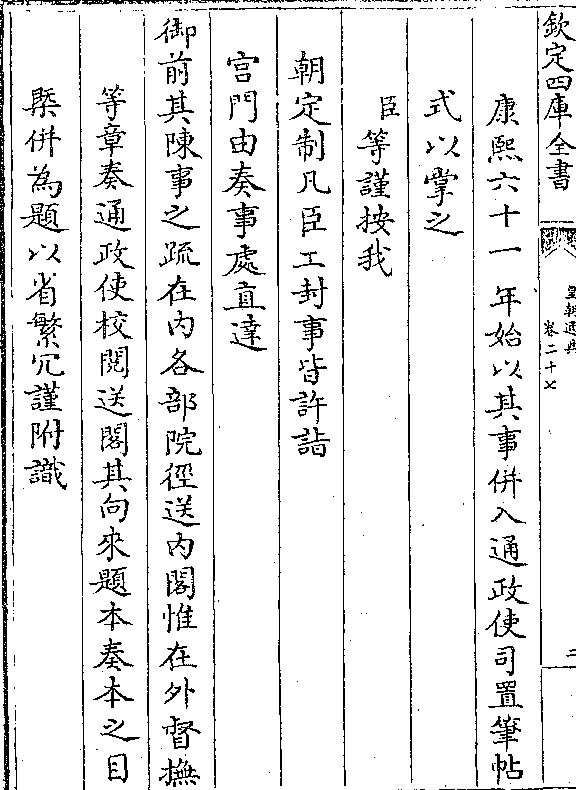 欽定四庫全書
皇朝通典
卷二十七
二
康熙六十一年始以其事併入通政使司置筆帖
式以掌之
臣等謹按我
朝定制凡臣工封事皆許詣
宮門由奏事處直達
御前其陳事之疏在內各部院徑送內閣惟在外督撫
等章奏通政使校閱送閣其向來題本奏本之目
槩併為題以省繁冗謹附識